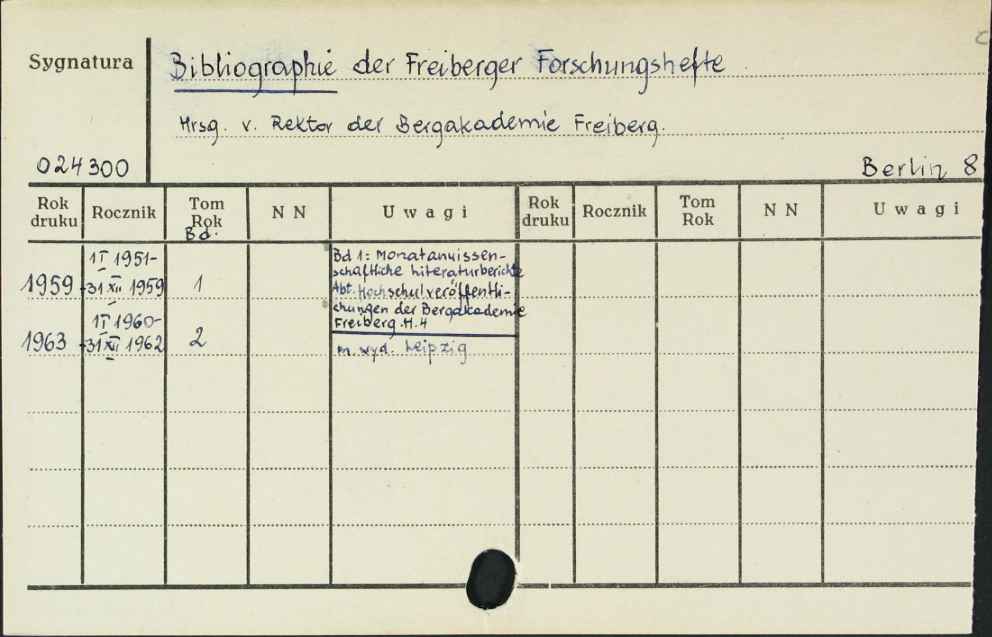 Sygnatura
Bibliographie der Freiberger Forschungshefte
Hrsg. v. Rektor der Bergakademie Freiberg.
024300
Berlin 8
Rok druku Rocznik Tom Rok Bd. N N Uwagi Rok druku Rocznik Tom Rok N N Uwagi
1959
1 I 1951-
-31 XII 1959
1
Bd 1: Monatanwissen-
schaftliche Literaturberichte
Abt. Hochschulveröffentli-
chungen der Bergakademie
Freiberg. H. 4
1963
1 I 1960-
-31 XII 1962
2
m. wyd. Leipzig